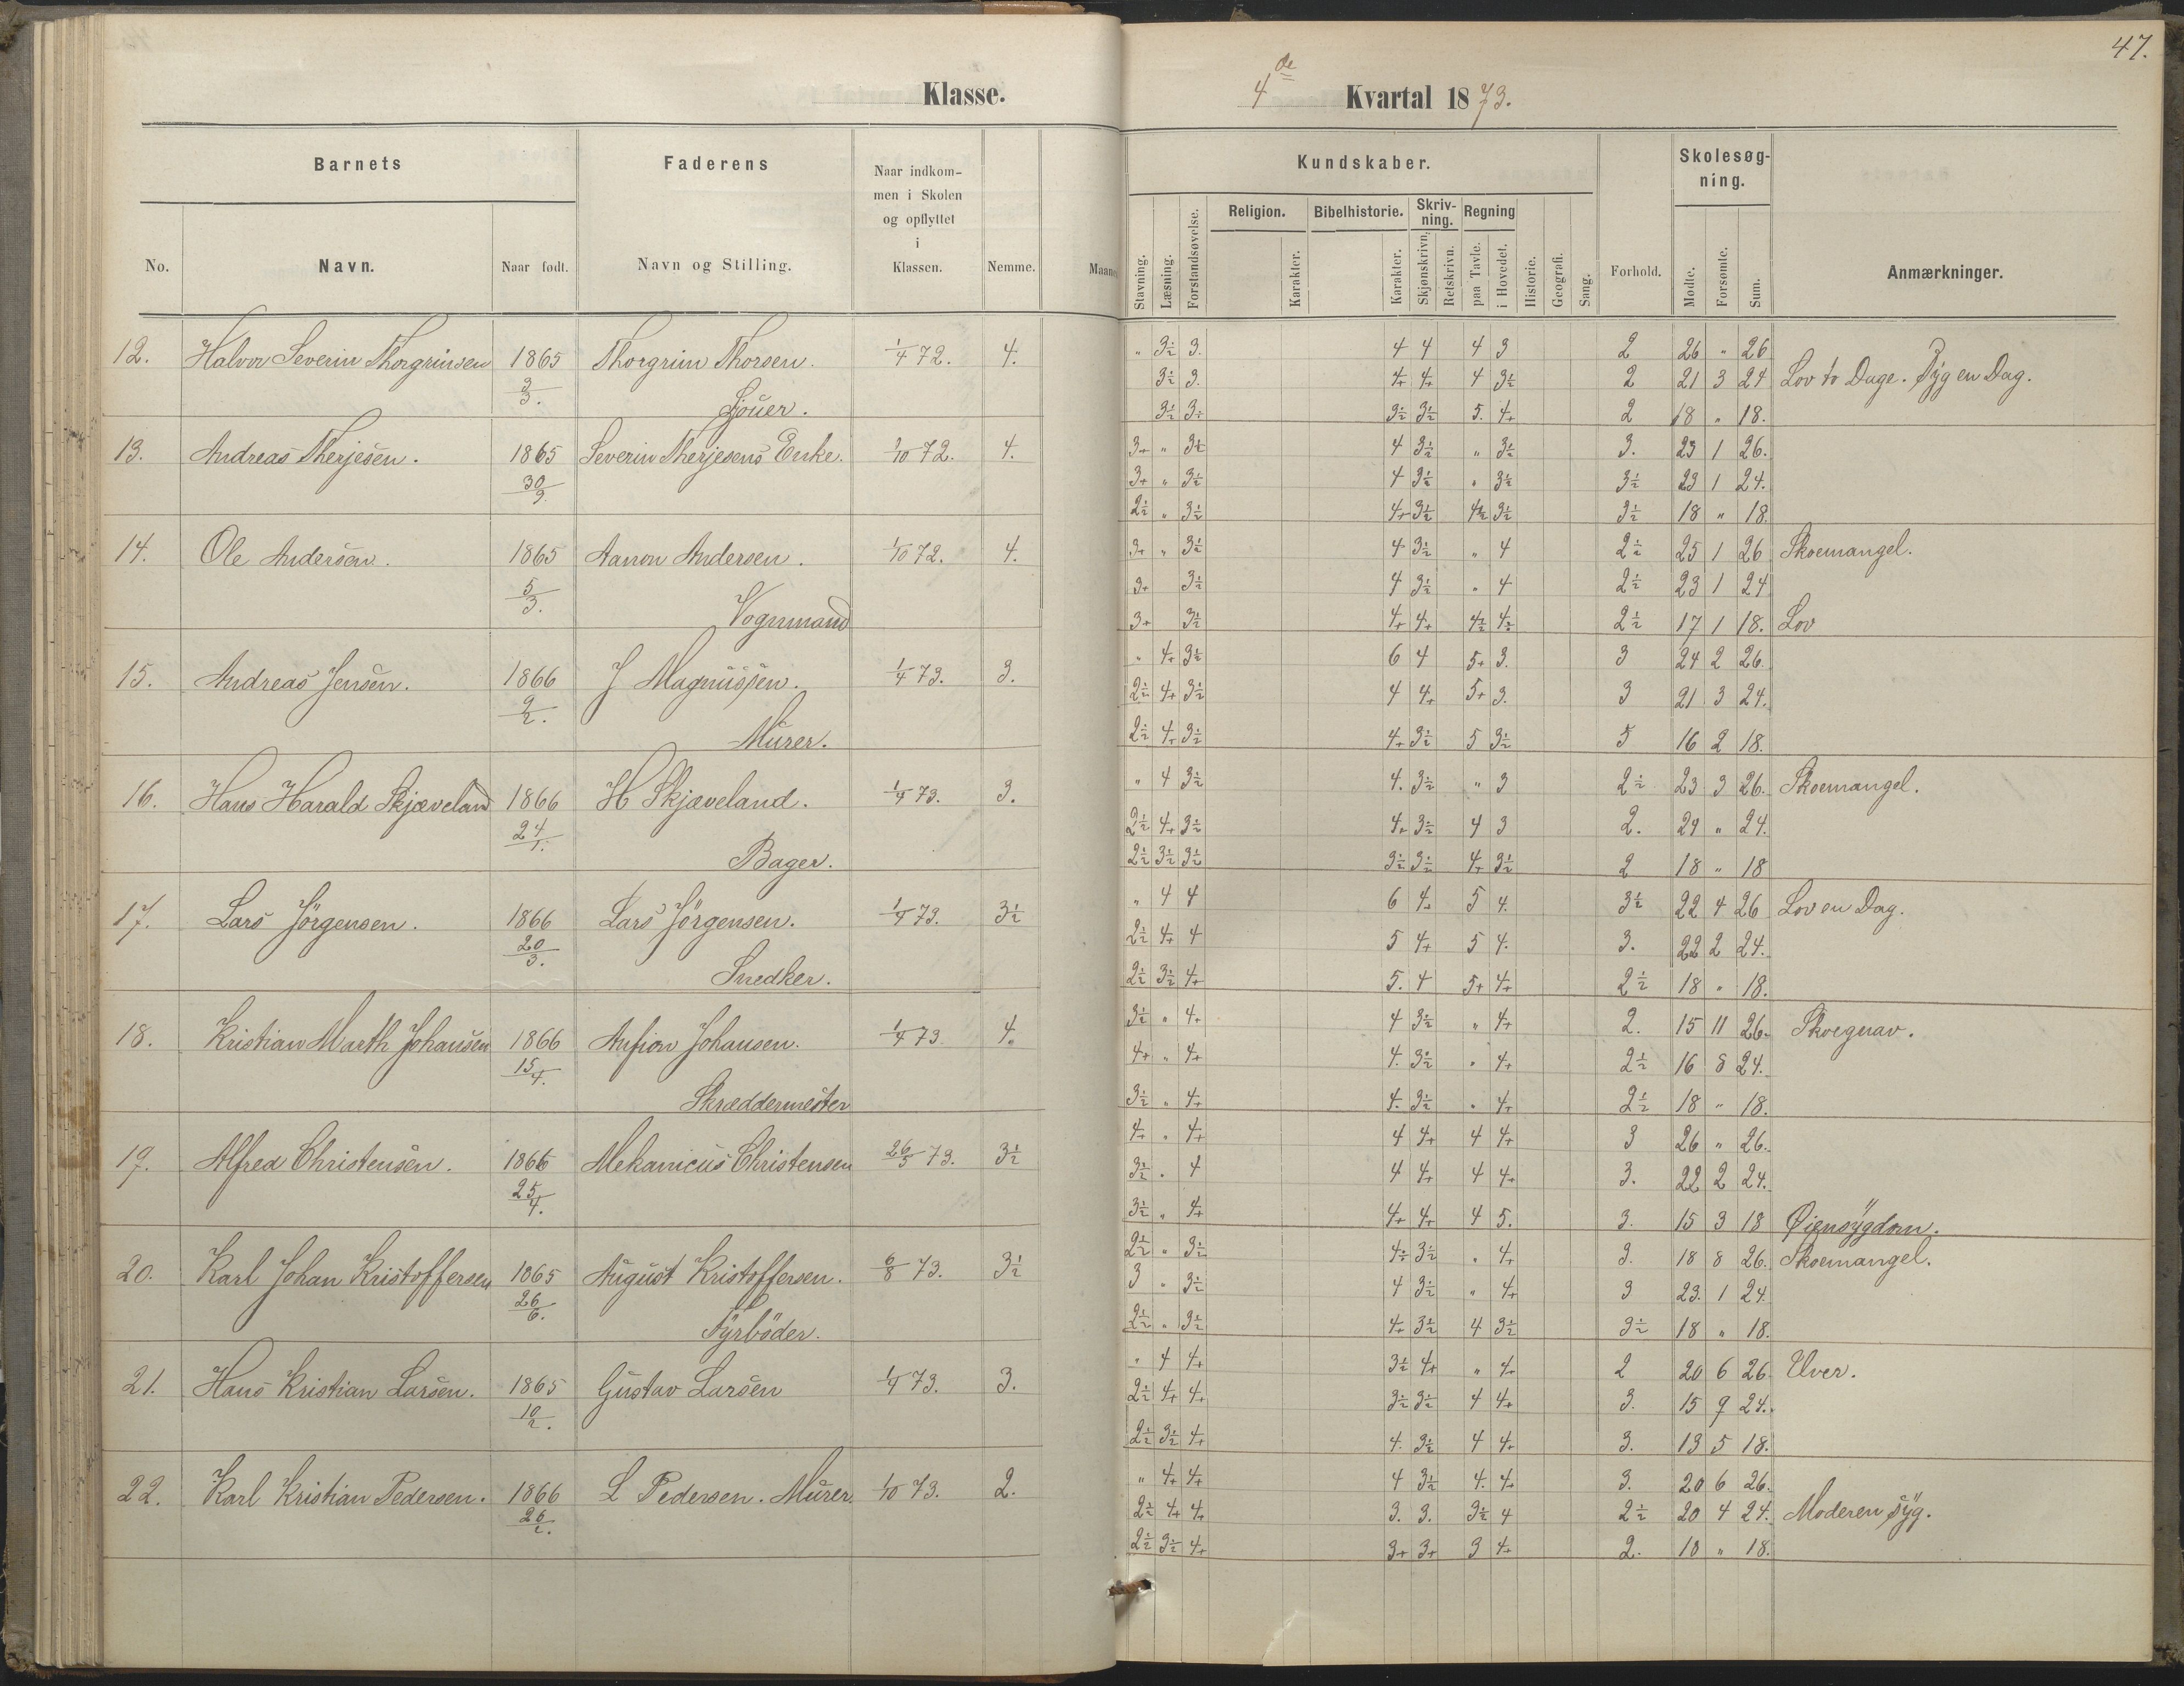 47.
Klasse.
4de Kvartal 1873.
Barnets
Faderens
Naar indkom-
men i Skolen
og opflyttet
i
Klassen.
No. Navn. Naar født. Navn og Stilling. Nemme. Maaned
Kundskaber.
Skolesøg-
ning.
Religion. Bibelhistorie. Skriv-
ning. Regning
Stavning. Læsning. Forstandsøvelse. Karakter. Karakter. Skjønskrivn. Retskrivn. paa Tavle. i Hovedet. Historie. Geografi. Sang. Forhold. Mødte. Forsømte. Sum. Anmærkninger.
12. Halvor Severin Thorgrimsen 1865 Thorgrim Thorsen. 1/4 72. 4.
3/3.
Sjouer.
13. Andreas Therjesen. 1865 Severin Therjesens Enke. 1/10 72. 4.
30/9.
14. Ole Andersen. 1865 Aanon Andersen. 1/10 72. 4.
5/3.
Vognmand
15. Andreas Jensen. 1866 J Magnussen. 1/4 73. 3.
9/2.
Murer.
16. Hans Harald Skjæveland 1866 H Skjæveland. 1/4 73. 3.
24/1.
Bager.
17. Lars Jörgensen. 1866 Lars Jörgensen. 1/4 73. 3½
20/3.
Snedker.
18. Kristian Marth Johansen 1866 Johansen. 1/4 73 4.
15/4.
Skræddermester
19. Alfred Christensen. 1866 Mekanicus Christensen 26/5 73. 3½
25/4.
20. Karl Johan Kristoffersen 1865 August Kristoffersen. 6/8 73. 3½
26/6.
Fyrböder.
21. Hans Kristian Larsen. 1865 Gustav Larsen 1/4 73. 3.
10/2.
22. Karl Kristian Pedersen. 1866 L Pedersen. Murer. 1/10 73. 2.
26/2.
" 3½ 3. 4 4 4 3 2 26 " 26
3½ 3. 4+ 4+ 4 3½ 2 21 3 24 Lov to Dage. Syg en Dag.
3½ 3½ 3½ 5. 4+ 2 18 " 18.
3+ " 3½ 4 3½ " 3½ 3. 23 1 26.
3+ " 3½ 4 3½ " 3½ 3½ 23 1 24.
2½ " 3½ 4+ 3½ 4½ 3½ 3½ 18 " 18.
3+ " 3½ 4 3½ " 4 2½ 25 1 26 Skoemangel.
3+ 3½ 4 3½ " 4 2½ 23 1 24
3+ 3½ 4+ 4+ 4½ 4½ 2½ 17 1 18. Lov
" 4+ 3½ 6 4 5+ 3. 3 24 2 26.
2½ 4+ 3½ 4 4+ 5+ 3. 3 21 3 24.
2½ 4+ 3½ 4+ 3½ 5 3½ 3 16 2 18.
" 4 3½ 4. 3½ " 3 2½ 23 3 26. Skoemangel.
2½ 4+ 3½ 4+ 3½ 4 3 2. 24 " 24.
2½ 3½ 3½ 3½ 3½ 4+ 3½ 2 18 " 18
" 4 4 6 4+ 5 4. 3½ 22 4 26 Lov en Dag.
2½ 4+ 4 5 4+ 5 4. 3. 22 2 24.
2½ 3½ 4+ 5. 4 5+ 4+ 2½ 18 " 18.
3½ " 4+ 4 3½ " 4+ 2. 15 11 26. Skoegnav.
4+ " 4+ 4. 3½ " 4+ 2½ 16 8 24.
3½ " 4+ 4. 3½ " 4+ 2½ 18 " 18.
4+ " 4+ 4 4+ 4 4+ 3 26 " 26.
3½ " 4 4 4+ 4 4+ 3. 22 2 24.
3½ " 4+ 4+ 4+ 4 5. 3. 15 3 18 Øiensygdom.
2½ " 3½ 4½ 3½ " 4+ 3. 18 8 26. Skoemangel.
3 " 3½ 4 3½ " 4+ 3 23. 1 24.
2½ " 3½ 4+ 3½ 4 3½ 3½ 18 " 18.
" 4 4+ 3½ 4+ " 4+ 2 20 6 26. Uver.
2½ 4+ 4+ 3½ 3½ 4 4+ 3. 15 9 24.
2½ 3½ 4+ 4. 3½ 4 4+ 3. 13 5 18.
" 4+ 4+ 4 3½ 4. 4+ 3. 20 6 26.
2½ 4+ 4+ 3. 3. 3½ 4 2½ 20 4 24. Moderen syg.
2½ 3½ 4+ 3+ 3+ 3 4+ 2. 18 " 18.